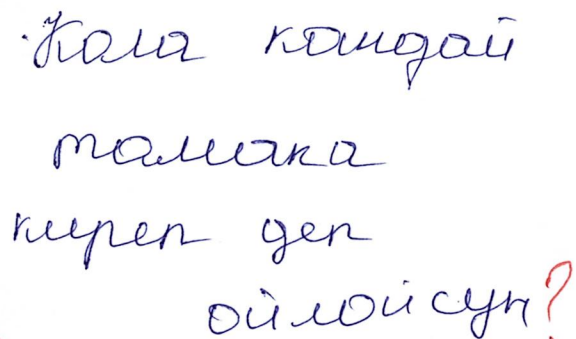 Кола кандай
тамака
кирет деп
ойлойсуң?